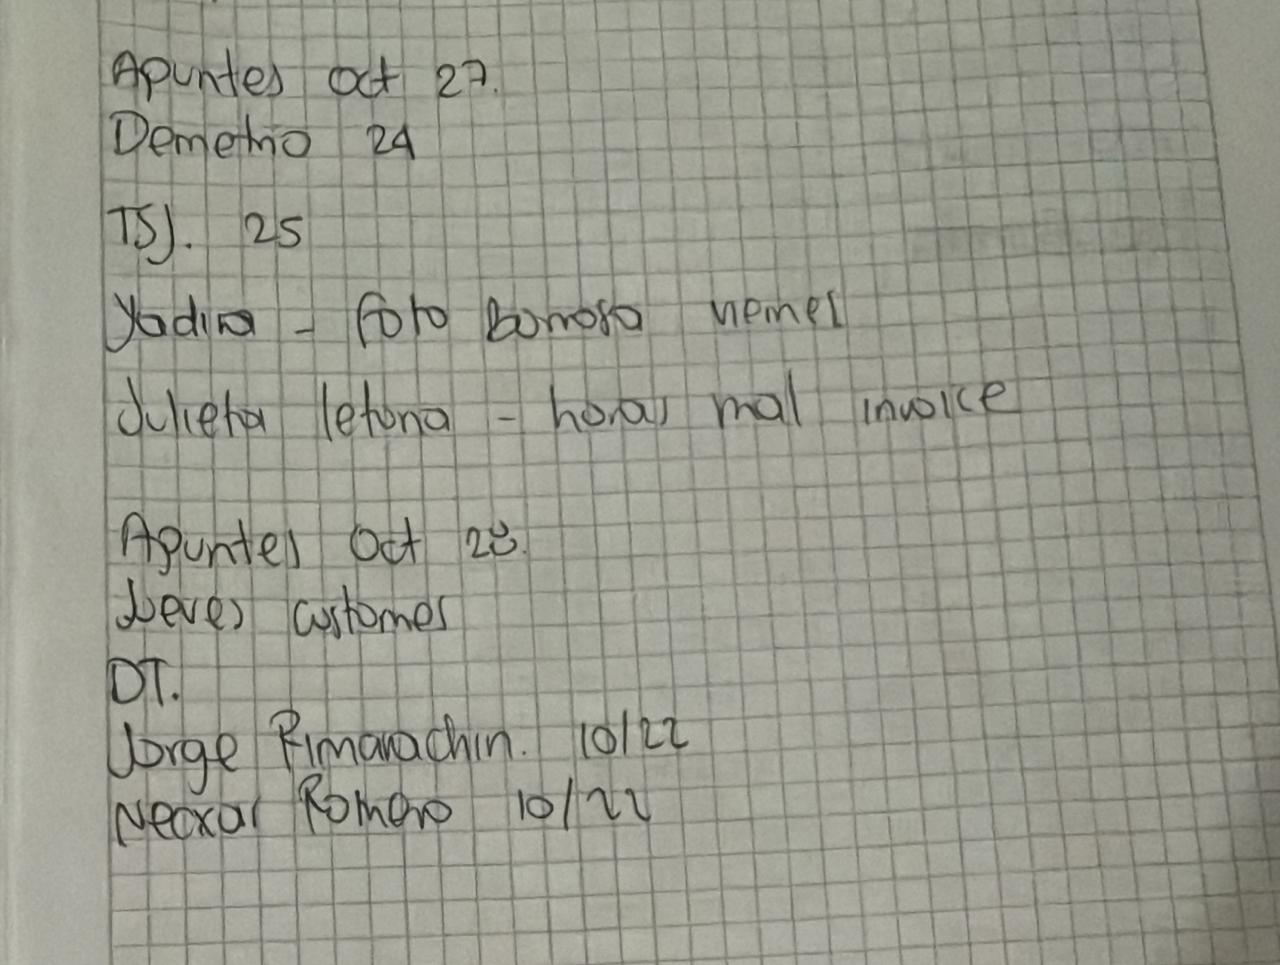 Apuntes Oct 27.
Demetrio 24
TSJ. 25
Yadira - foto borrosa viernes
Julieta letona - horas mal invoice
Apuntes Oct 28.
Jueves customer
DT.
Jorge Rimarachin. 10/22
Neoxar Romero 10/22